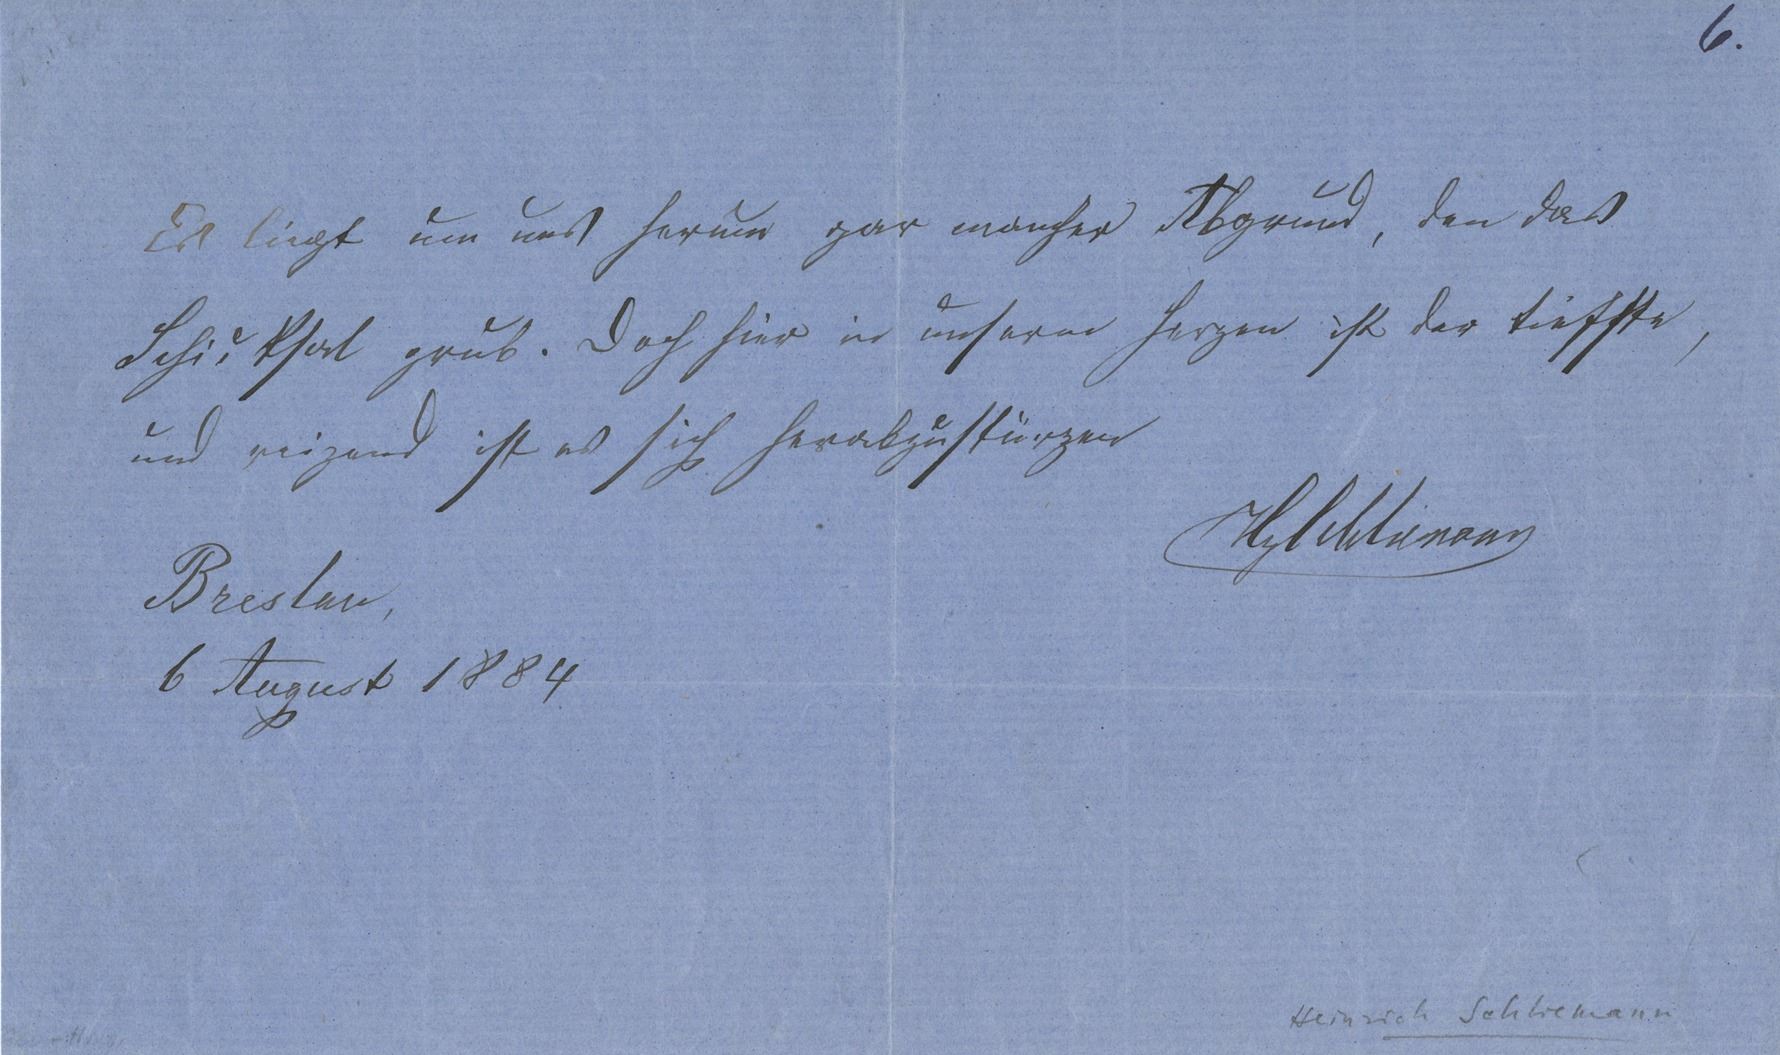 6.
Es liegt um uns herum gar mancher Abgrund, den das
Schicksal grub. Doch hier in unserm Herzen ist der tiefste,
und reizend ist es sich herabzustürzen
HySchliemann
Breslau,
6 August 1884
Heinrich Schliemann